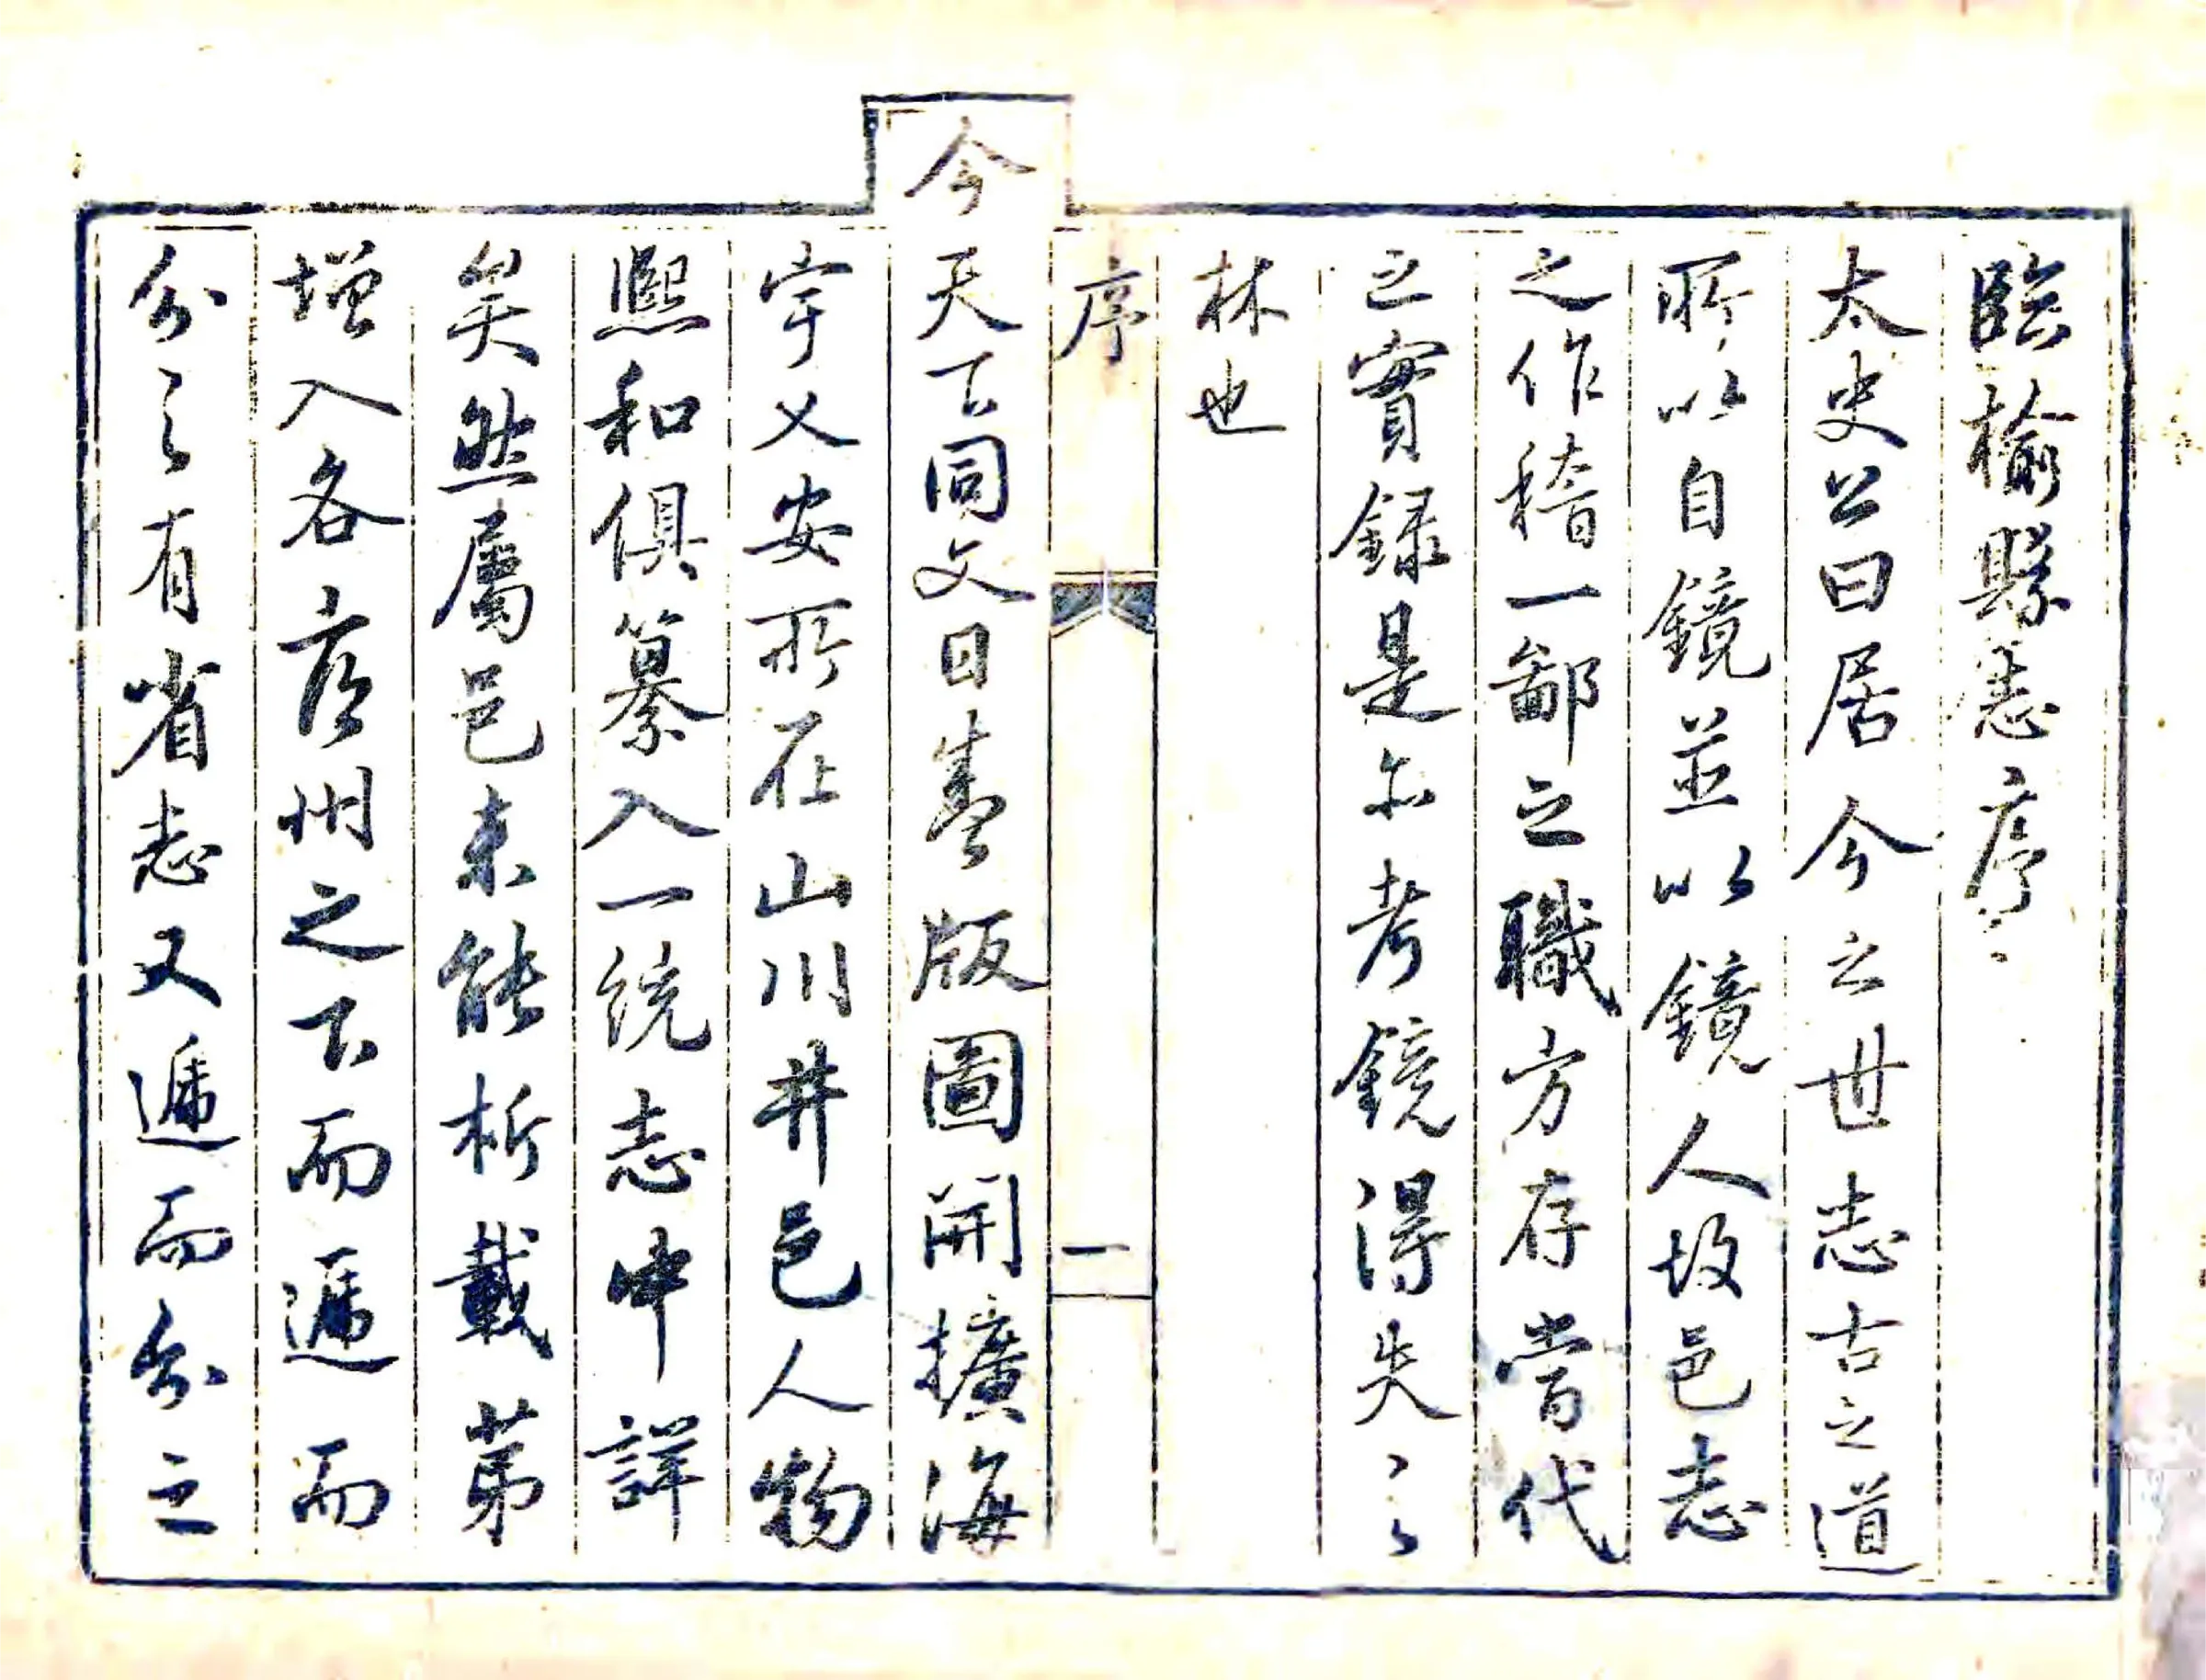 臨榆縣志序
太史公曰居今之世志古之道
所以自鏡並以鏡人故邑志
之作稽一鄙之職方存當代
之實錄是亦考鏡得失之
林也
序
一
今
天下同文日盛版圖開擴海
宇乂安所在山川井邑人物
熙和俱纂入一統志中詳
矣然屬邑未能析載第
增入各府州之下而遞而
分之有省志又遞而分之